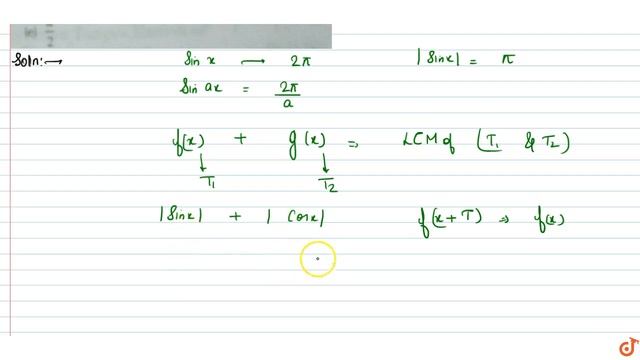 Soln:→ Sin x → 2π |Sinx| = π
Sin ax = 2π/a
f(x) + g(x) ⇒ LCM of (T₁ & T₂)
↓ ↓
T₁ T₂
|Sinx| + | Cosx| f(x+T) ⇒ f(x)